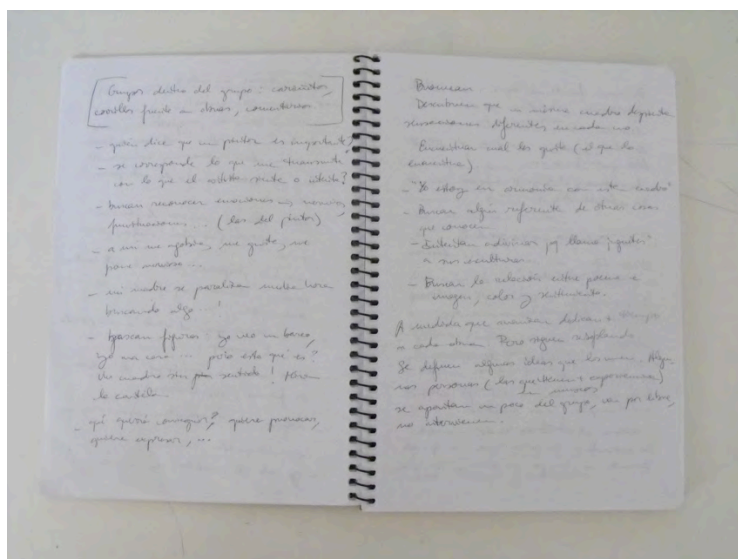 Grupos dentro del grupo: carreritas,
corrillos frente a obras, comentarios
- quién dice que un pintor es importante?
- se corresponde lo que me "transmite"
con lo que el artista siente o intenta?
- buscan reconocer emociones
frustraciones ... (las del pintor)
- a mí me agobia, me gusta, me
pone nerviosa ...
- mi madre se paralizan media hora
buscando algo ...!
- buscan figuras: yo veo un barco,
yo una cara ... pero esto qué es?
Un cuadro sin sentado! 
la cartela.
- qué quiere ? quiere provocar,
quiere expresar, ...
Bromean.
Descubren que un mismo cuadro despierta
sensaciones diferentes en cada uno.
Encuentran cual les gusta (el que lo
encuentra)
- "Yo estoy en armonía con este cuadro"
- Buscan algún referente de otras cosas
que conocen
- Intentan adivinar pq llama "juguetes"
a sus esculturas.
- Buscan la relación entre poema e
imagen, color y sentimiento.
A medida que avanzan dedican + tiempo
a cada obra. Pero siguen
Se definen algunas ideas que los unen. Algu-
nas personas (las que tienen + experiencia)
en museos
se apartan un poco del grupo, van por libre,
no intervienen.